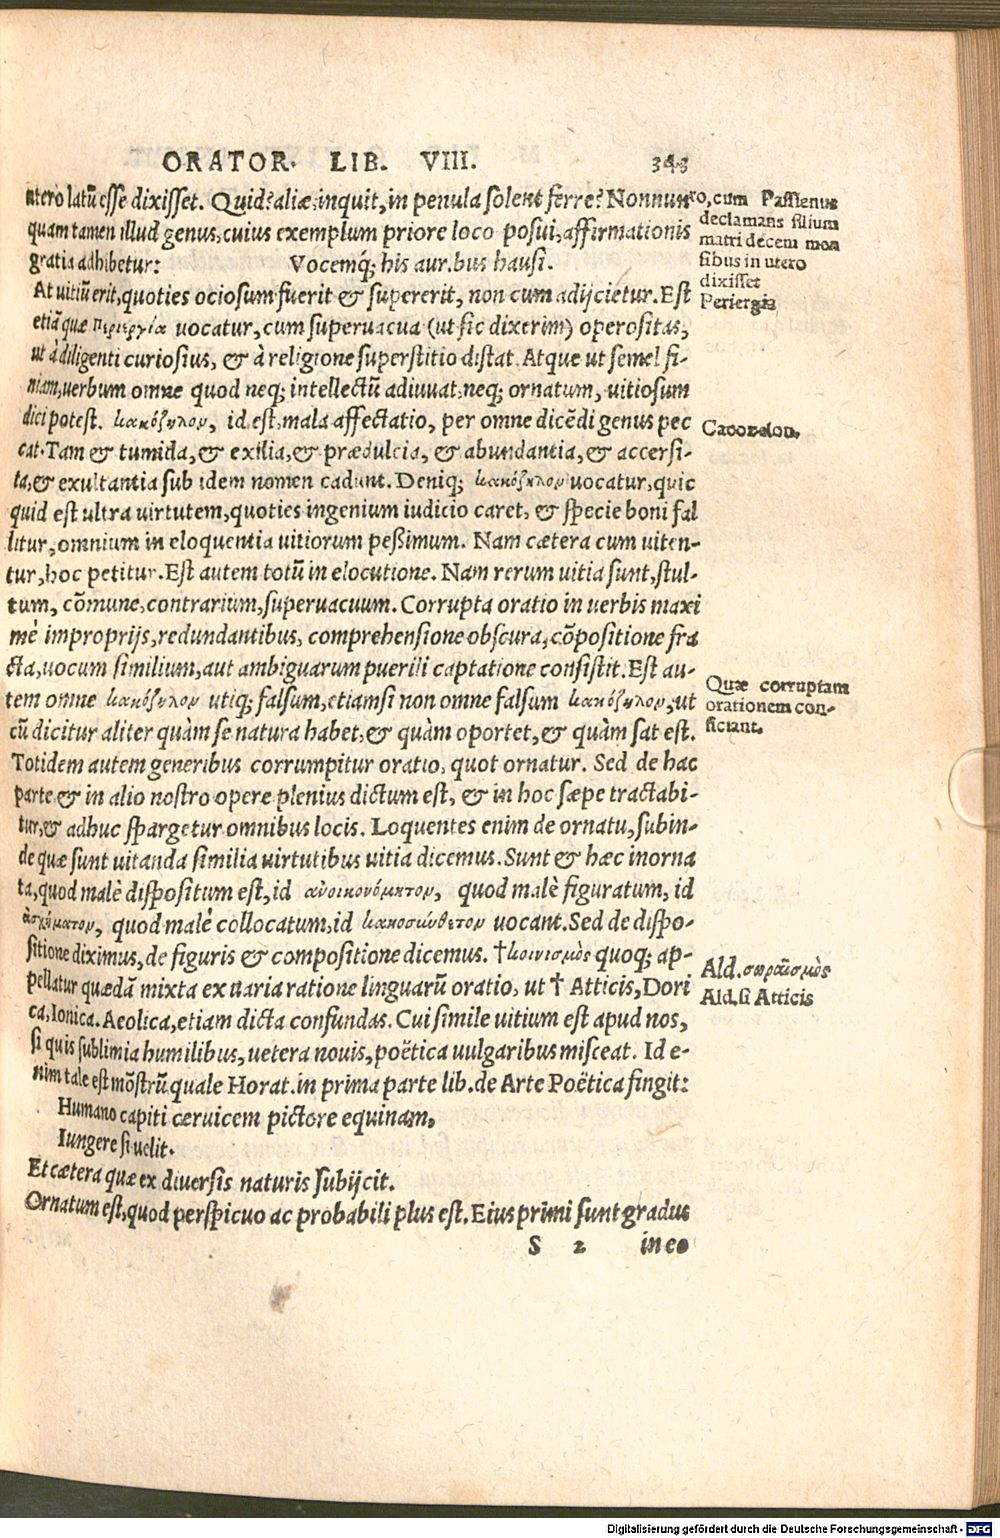 ORATOR. LIB. VIII. 343
utero latū esse dixisset. Quid? aliæ, inquit, in penula solent ferre? Nonnun
quam tamen illud genus, cuius exemplum priore loco posui, affirmationis
gratia adhibetur: Vocemq́; his auribus hausi.
At uitiū erit, quoties ociosum fuerit & supererit, non cum adijcietur. Est
etiā quæ περιεργία uocatur, cum superuacua (ut sic dixerim) operositas,
ut à diligenti curiosius, & à religione superstitio distat. Atque ut semel fi-
niam, uerbum omne quod neq; intellectū adiuuat, neq; ornatum, uitiosum
dici potest. κακόζηλον, id est, mala affectatio, per omne dicēdi genus pec
cat. Tam & tumida, & exilia, & prædulcia, & abundantia, & accersi-
ta, & exultantia sub idem nomen cadunt. Deniq; κακόζηλον uocatur, quic
quid est ultra uirtutem, quoties ingenium iudicio caret, & specie boni fal
litur, omnium in eloquentia uitiorum peßimum. Nam cætera cum uiten-
tur, hoc petitur. Est autem totū in elocutione. Nam rerum uitia sunt, stul-
tum, cōmune, contrarium, superuacuum. Corrupta oratio in uerbis maxi
mè improprijs, redundantibus, comprehensione obscura, cōpositione fra
cta, uocum similium, aut ambiguarum puerili captatione consistit. Est au-
tem omne κακόζηλον utiq; falsum, etiamsi non omne falsum κακόζηλον, ut
cū dicitur aliter quàm se natura habet, & quàm oportet, & quàm sat est.
Totidem autem generibus corrumpitur oratio, quot ornatur. Sed de hac
parte & in alio nostro opere plenius dictum est, & in hoc sæpe tractabi-
tur, & adhuc spargetur omnibus locis. Loquentes enim de ornatu, subin-
de quæ sunt uitanda similia uirtutibus uitia dicemus. Sunt & hæc inorna
ta, quod malè dispositum est, id ἀνοικονόμητον, quod malè figuratum, id
ἀσχήματον, quod malè collocatum, id κακοσύνθετον uocant. Sed de dispo-
sitione diximus, de figuris & compositione dicemus. † κοινισμὸς quoq; ap-
pellatur quædā mixta ex uaria ratione linguarū oratio, ut † Atticis, Dori
ca, Ionica. Aeolica, etiam dicta confundas. Cui simile uitium est apud nos,
si quis sublimia humilibus, uetera nouis, poëtica uulgaribus misceat. Id e-
nim tale est mōstrū quale Horat. in prima parte lib. de Arte Poëtica fingit:
Humano capiti ceruicem pictore equinam,
Iungere si uelit.
Et cætera quæ ex diuersis naturis subijcit.
Ornatum est, quod perspicuo ac probabili plus est. Eius primi sunt gradus
S 2 in eo
ro, cum Passienus
declamans filium
matri decem men
sibus in utero
dixisset
Periergia
Cacozelon.
Quæ corruptam
orationem con-
ficiant.
Ald. σοραϊσμὸς
Ald. si Atticis
Digitalisierung gefördert durch die Deutsche Forschungsgemeinschaft - DFG